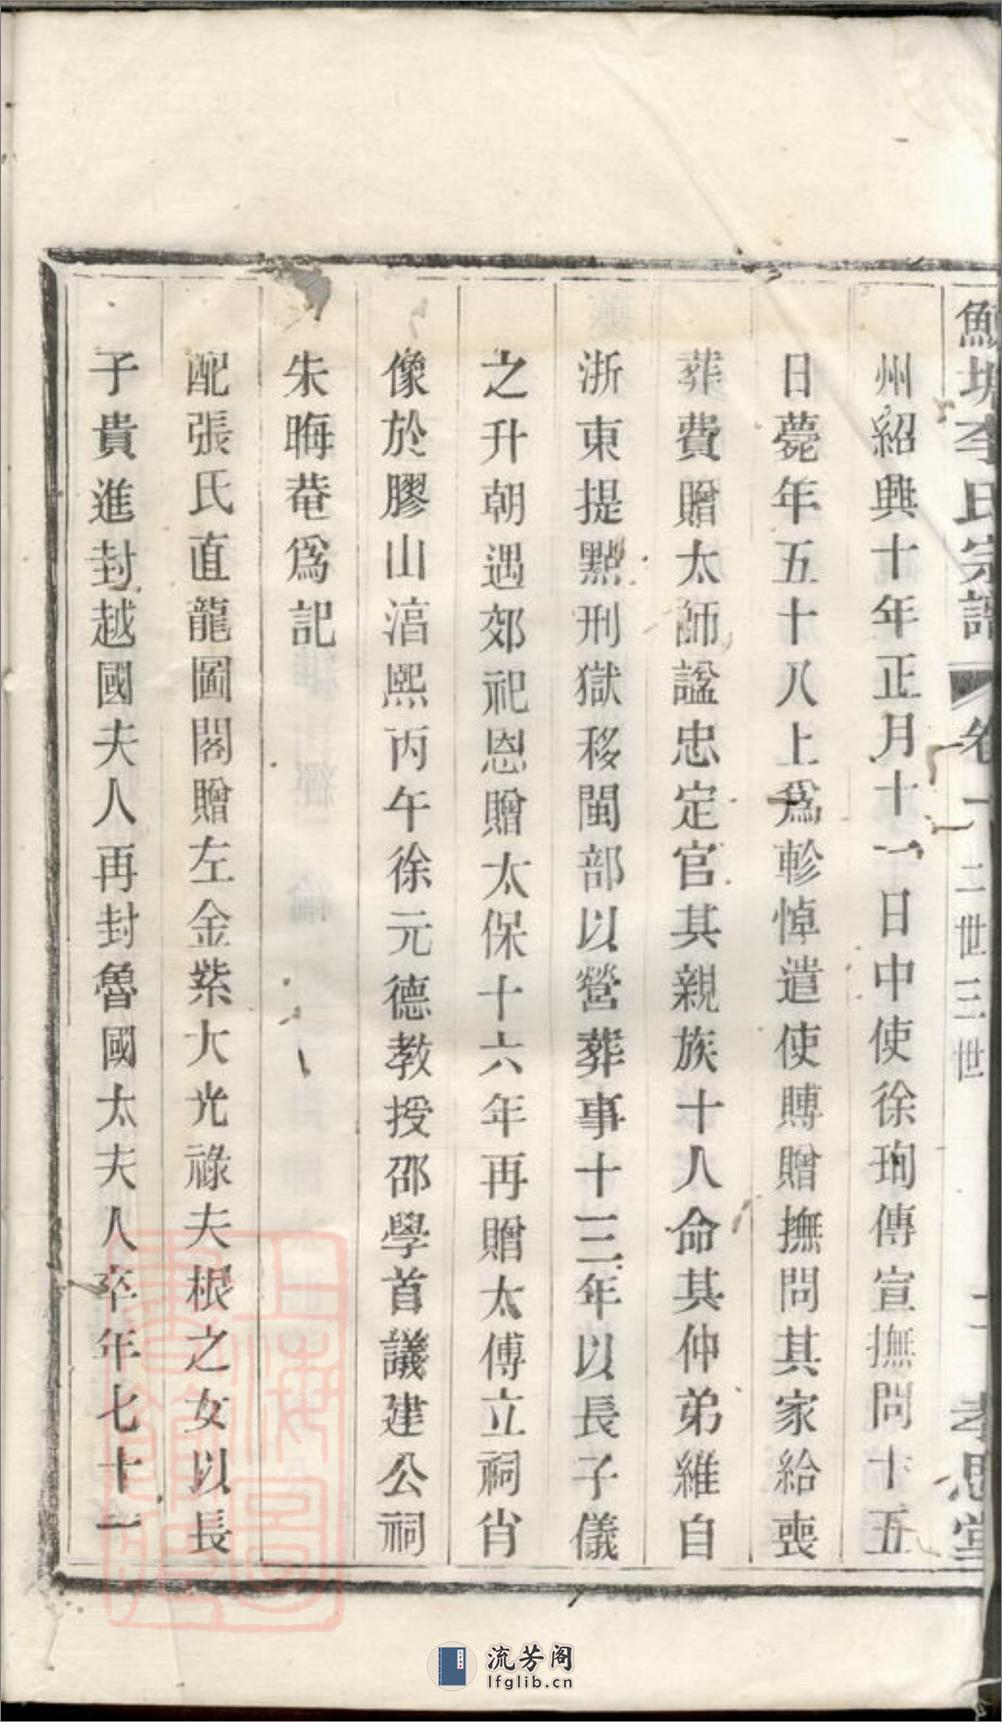 李氏宗譜 卷一 二世三世 二 孝思堂
州紹興十年正月十一日中使徐珣傳宣撫問十五
日薨年五十八上爲軫悼遣使賻贈撫問其家給喪
葬費贈太師諡忠定官其親族十人命其仲弟維自
浙東提點刑獄移閩部以營葬事十三年以長子儀
之升朝遇郊祀恩贈太保十六年再贈太傅立祠肖
像於膠山湻熙丙午徐元德教授邵學首議建公祠
朱晦菴爲記
配張氏直龍圖閣贈左金紫大光祿夫根之女以長
子貴進封越國夫人再封魯國太夫人卒年七十一
上海圖書館藏
流芳阁
lfglib.cn